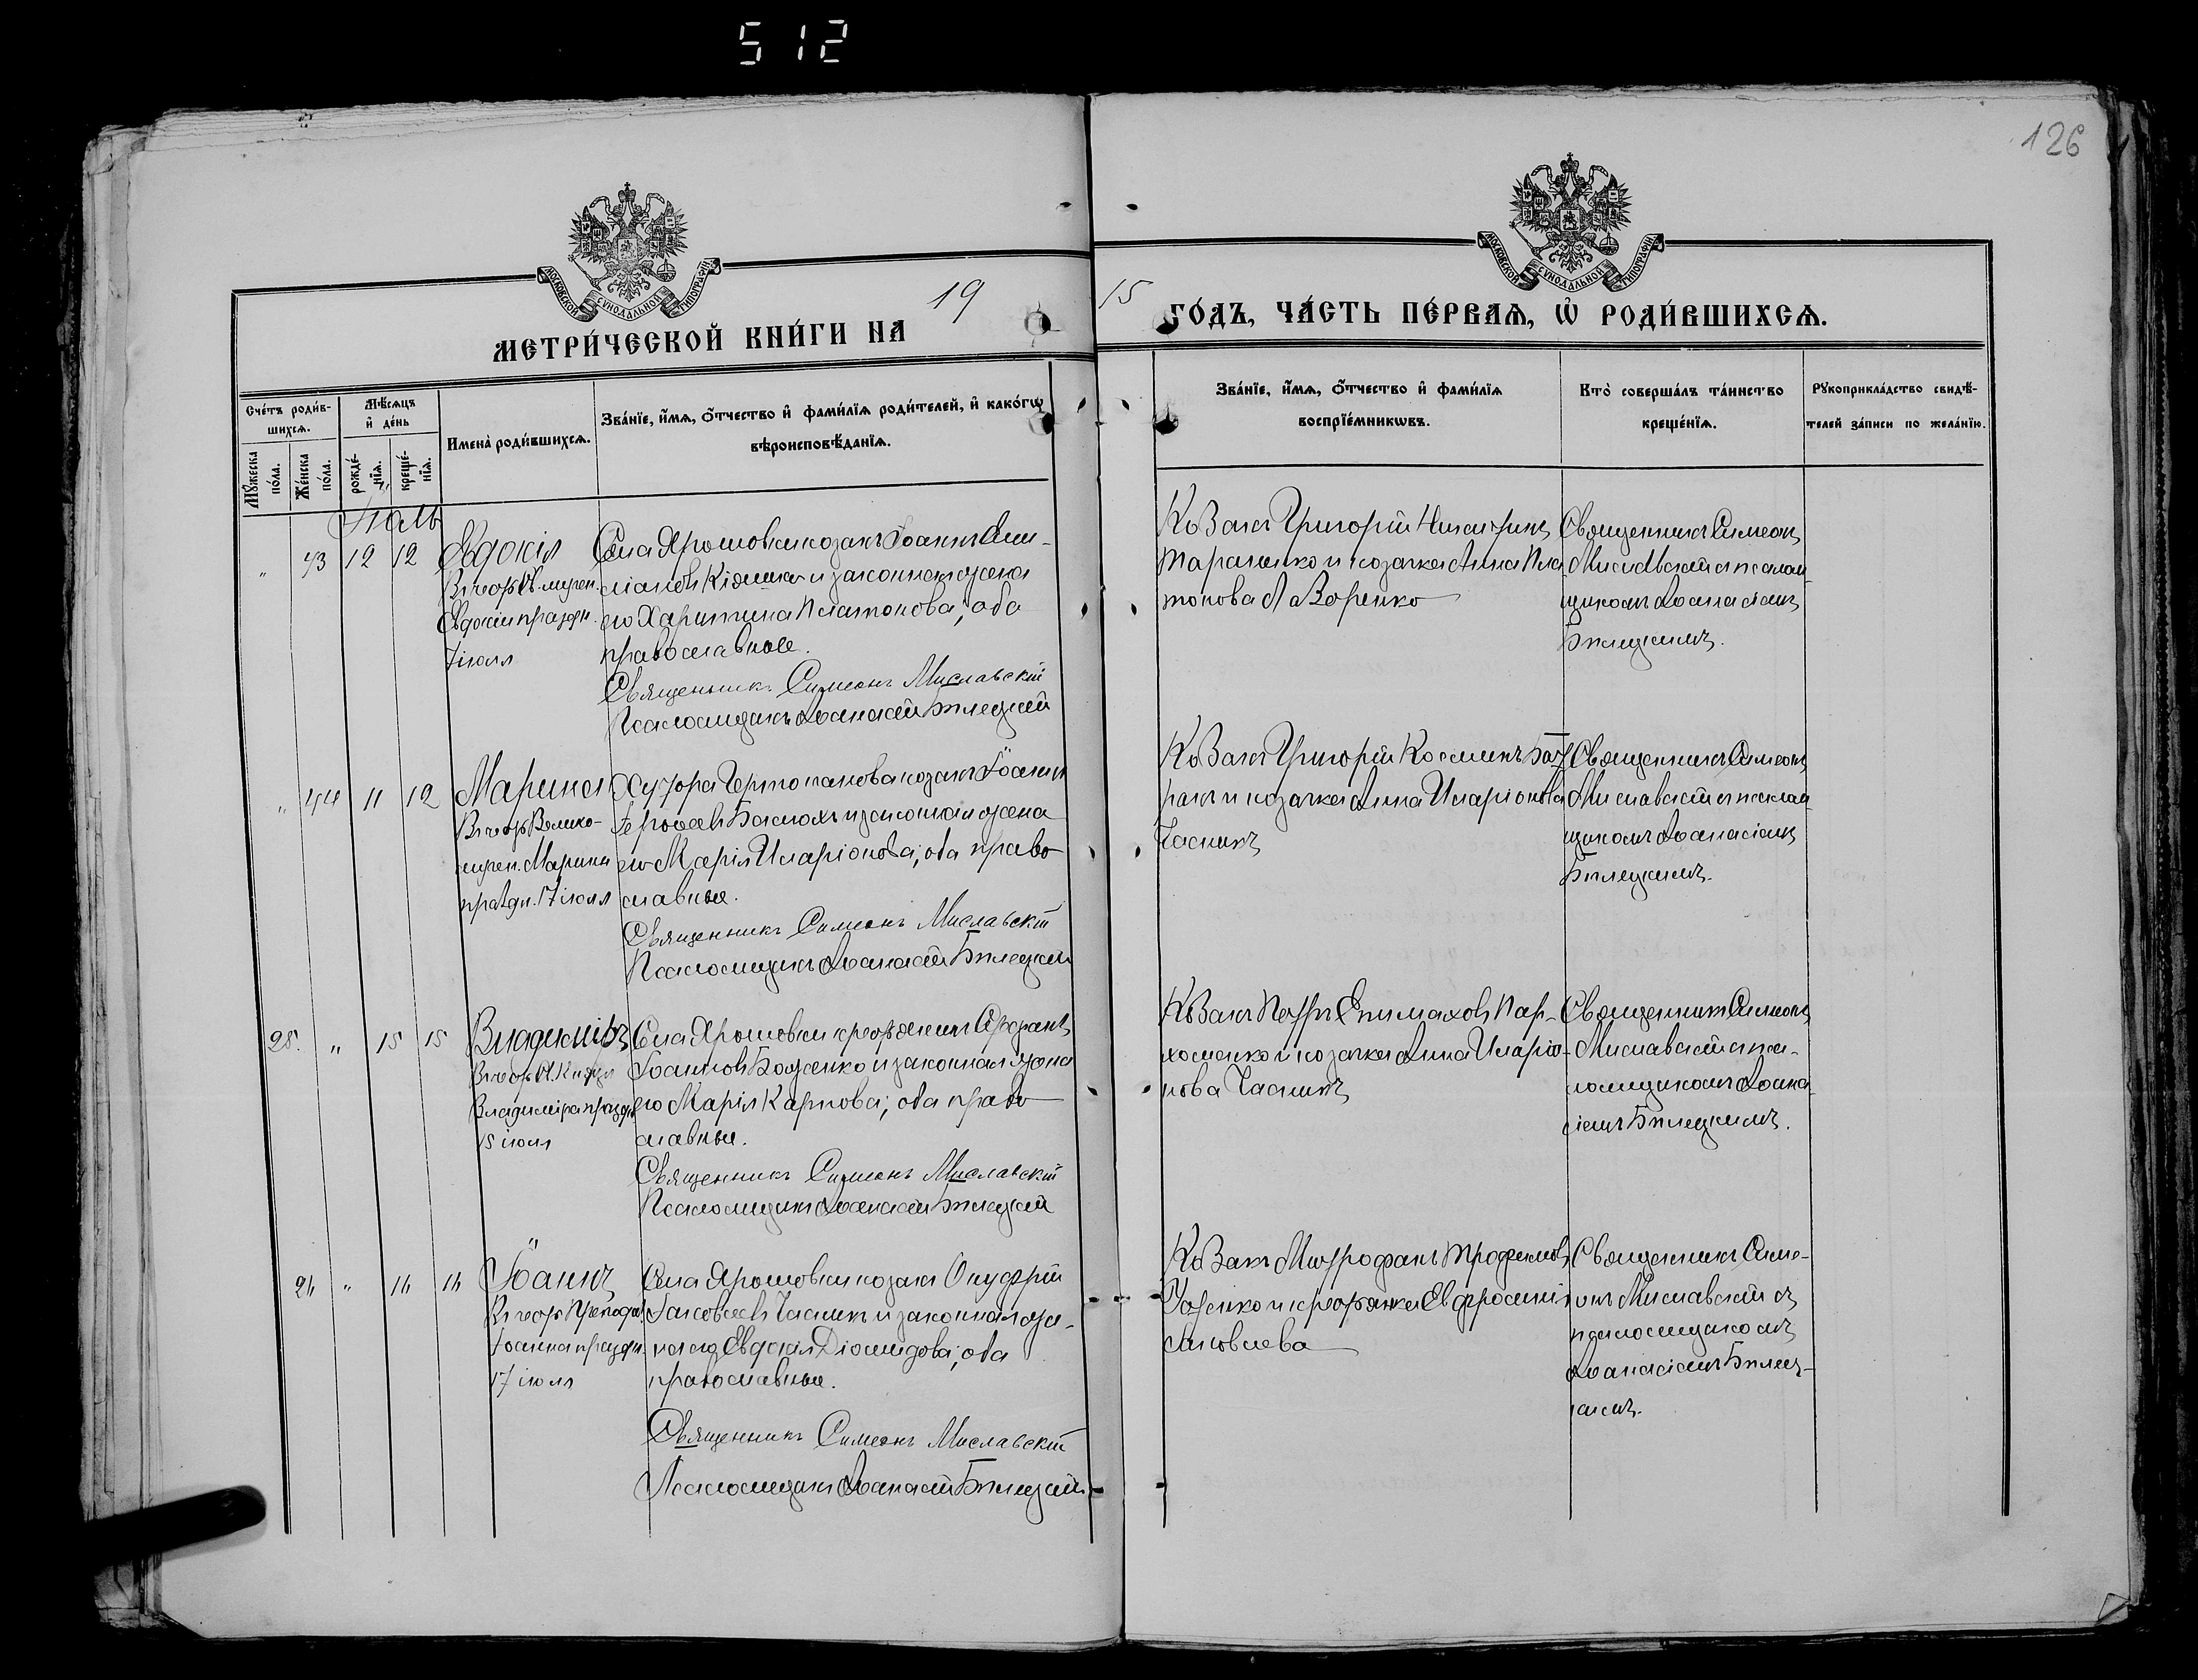 512
126
МОСКОВСКОЙ СУНОДАЛЬНОЙ ТИПОГРАФІИ
МОСКОВСКОЙ СУНОДАЛЬНОЙ ТИПОГРАФІИ
МЕТРИ́ЧЕСКОЙ КНИ́ГИ НА 19
15 ГО́ДЪ, ЧА́СТЬ ПЕ́РВАѦ, Ѡ҆ РОДИ́ВШИХСѦ.
Сче́тъ роди́в-
шихсѧ.
Мꙋ́жеска по́ла.
Же́нска по́ла.
Мѣ́сѧцъ
и҆ де́нь
рожде́-нїѧ.
креще́-нїѧ.
Имена̀ роди́вшихсѧ.
Зва́нїе, и҆́мѧ, ѻ҆́тчество и҆ фамі́лїѧ роди́телей, и҆ како́гѡ
вѣроисповѣ́данїѧ.
Зва́нїе, и҆́мѧ, ѻ҆́тчество и҆ фамі́лїѧ
воспрїе́мникѡвъ.
Кто̀ соверша́лъ та́инство
креще́нїѧ.
Рꙋкоприкла́дство свидѣ́-
телей за́писи по жела́нїю.
Іюль
" 43 12 12
Евдокія
Въ честь Св. мучен.
Евдокіи праздн.
7 іюля
Села Ярошовки козакъ Іоаннъ
и законная жена
его Харитина Платонова; оба
православные.
Священникъ Симеонъ Миславскій
Псаломщикъ Аѳанасій Билецкій
Козакъ Григорій
Тараненко и козачка Анна Пла-
тонова Лазоренко
Священникъ Симеонъ
Миславскій съ псалом-
щикомъ Аѳанасіемъ
Билецкимъ.
" 44 11 12
Марина
Въ честь Велико-
мучен. Марины
праздн. 17 іюля
Хутора козакъ Іоаннъ
и законная жена
его Марія Иларіонова; оба право-
славные.
Священникъ Симеонъ Миславскій
Псаломщикъ Аѳанасій Билецкій
Козакъ Григорій Косминъ
и козачка Анна Иларіонова
Часникъ
Священникъ Симеонъ
Миславскій съ псалом-
щикомъ Аѳанасіемъ
Билецкимъ.
28. " 15 15
Владиміръ
Въ честь Св. Князя
Владиміра праздн.
15 іюля
Села Ярошовки крестьянинъ
Іоанновъ Боженко и законная жена
его Марія Карпова; оба право-
славные.
Священникъ Симеонъ Миславскій
Псаломщикъ Аѳанасій Билецкій
Козакъ Петръ Епимаховъ Пар-
хоменко и козачка Анна Иларіо-
нова Часникъ
Священникъ Симеонъ
Миславскій съ пса-
ломщикомъ Аѳана-
сіемъ Билецкимъ.
Іоаннъ
Въ честь Преподоб.
Іоанна праздн.
17 іюля
Села Ярошовки козакъ Онуфрій
Яковлевъ Часникъ и законная же-
на его Евдокія Діомидова; оба
православные.
Священникъ Симеонъ Миславскій
Псаломщикъ Аѳанасій Билецкій
Козакъ Митрофанъ Трофимовъ
и крестьянка Евфросинія
Яковлева
Священникъ Симе-
онъ Миславскій съ
псаломщикомъ
Аѳанасіемъ Билец-
кимъ.